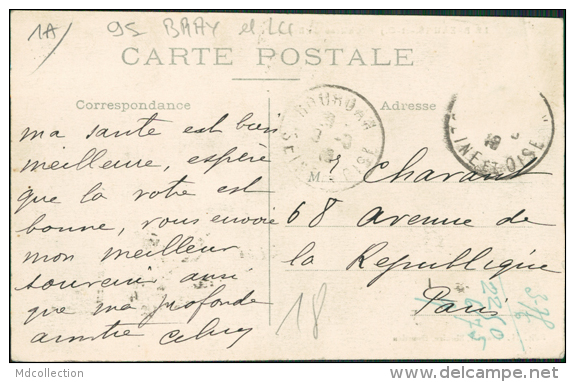 1A) 95 BRAY et LU
CARTE POSTALE
Correspondance
Adresse
ma santé est bien
meilleure, espère
que la votre est
bonne, vous envoie
mon meilleur
souvenir ainsi
que ma profonde
amitié
M. Chavant
68 avenue de
la République
Paris
18
SEINE ET OISE
Mdcollection
delcampe.net